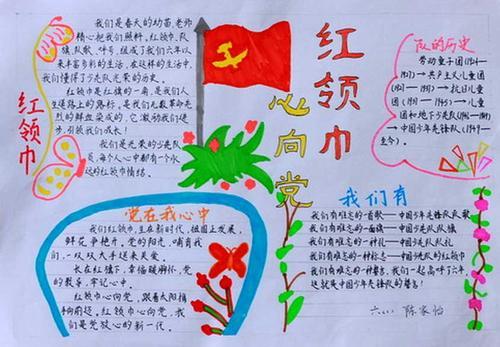 红领巾
心向党
红领巾
我们是春天的幼苗,老师
精心把我们照料。红领巾、队
旗、队歌、呼号,组成了我们六年以
来丰富多彩的生活,在这样的生活中
我们懂得了少先队光荣的历史。
红领巾是红旗的一角,是我们人
生道路上的路标,是我们无数革命先
烈的鲜血染成的,它激励我们进
步,引领我们成长!
我们是光荣的少先队
员,每个人心中都有一个永
远的红领巾情结。
队的历史
劳动童子团(1924—
1927)→共产主义儿童团
(1927—1937)→抗日儿童
团(1937—1945)→儿童
团和地下少先队(1945—1949)
→中国少年先锋队(1949—
至今)。
党在我心中
我们红领巾,生在新时代,祖国大发展,
鲜花争艳开。党的阳光,哺育我
们,一双双大手送来关爱。
长在红旗下,幸福暖胸怀,党
的教导,牢记心中。
红领巾心向党,跟着太阳棋
手向前进。红领巾心向党,我
们是党放心的新一代。
我们有
我们有难忘的一首歌——中国少年先锋队队歌
我们有难忘的一面旗——中国少先队队旗
我们有难忘的一种礼——中国少先队队礼
我们有难忘的一种标志——中国少先队的红领巾
我们有难忘的一种誓言,我们一起高呼了六年,
这就是中国少年先锋队的誓言!
陈家怡